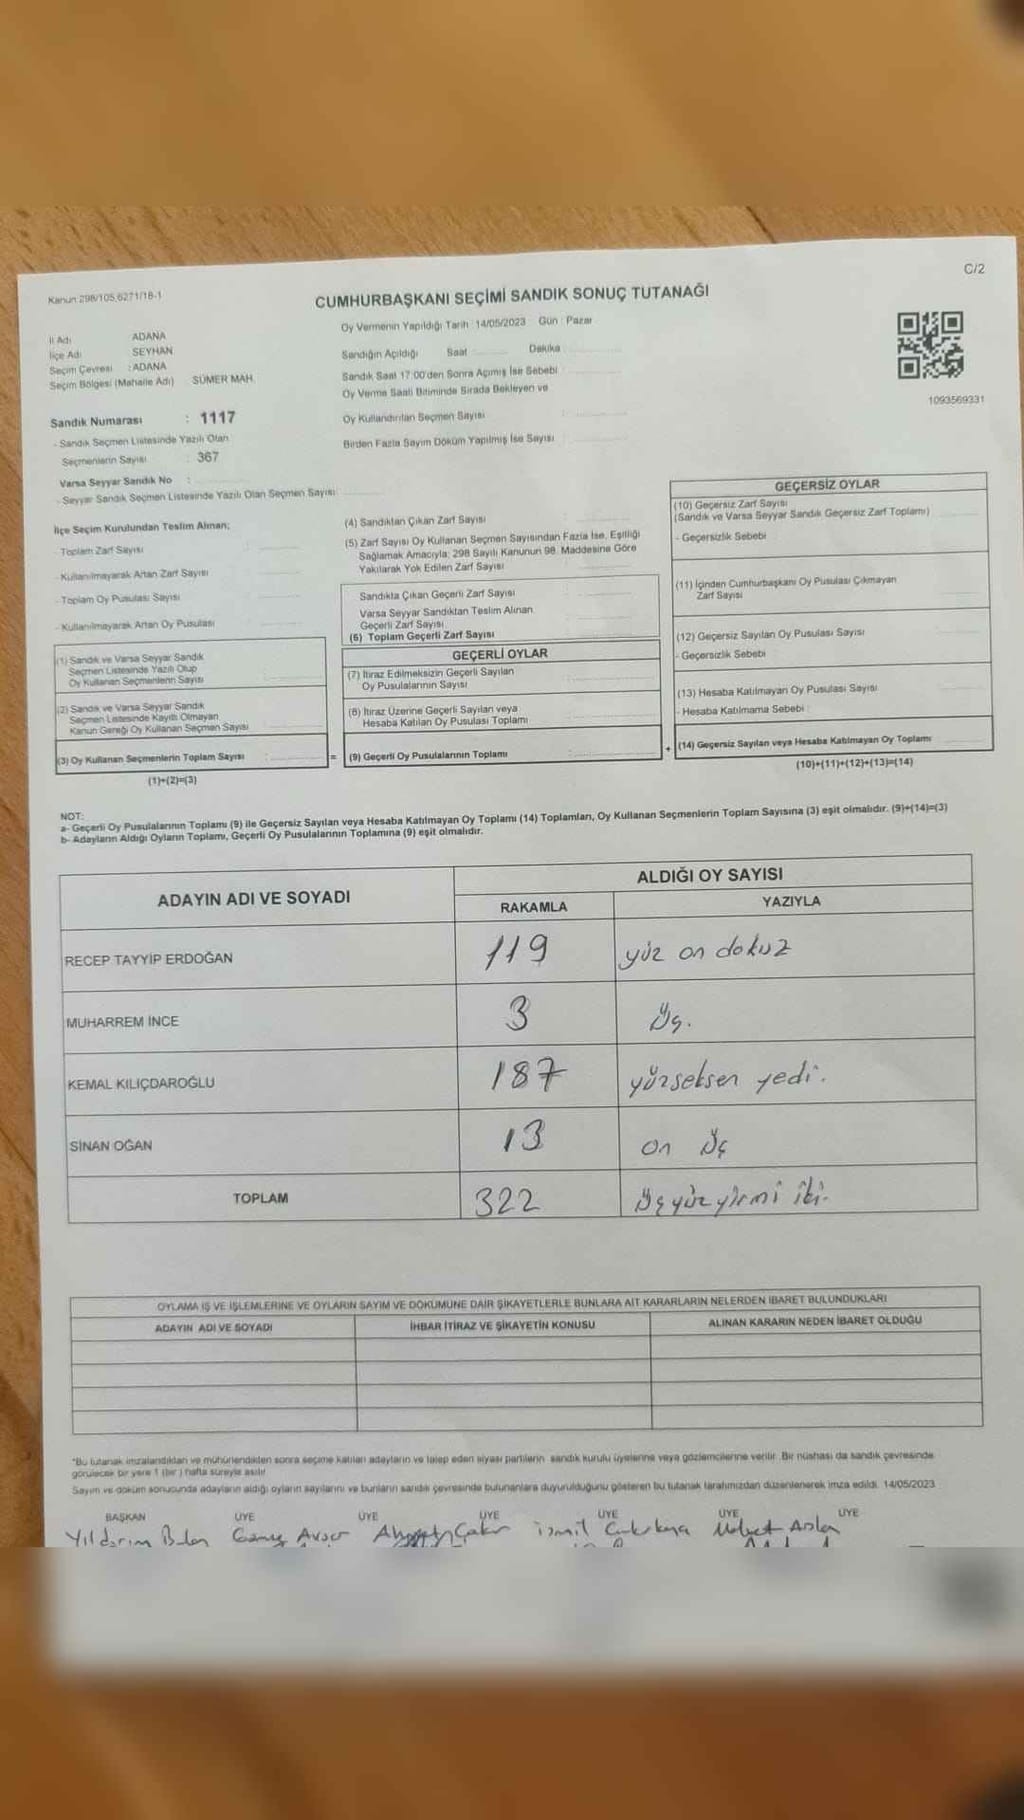 C/2
Kanun 298/105,6271/18-1
CUMHURBAŞKANI SEÇİMİ SANDIK SONUÇ TUTANAĞI
Oy Vermenin Yapıldığı Tarih : 14/05/2023 Gün : Pazar
İl Adı ADANA
İlçe Adı SEYHAN
Seçim Çevresi : ADANA
Seçim Bölgesi (Mahalle Adı) SÜMER MAH.
Sandığın Açıldığı Saat Dakika
Sandık Saat 17:00'den Sonra Açımış İse Sebebi
Oy Verme Saati Bitiminde Sırada Bekleyen ve
Oy Kullandırılan Seçmen Sayısı
Birden Fazla Sayım Döküm Yapılmış İse Sayısı
1093569331
Sandık Numarası : 1117
- Sandık Seçmen Listesinde Yazılı Olan
Seçmenlerin Sayısı : 367
Varsa Seyyar Sandık No :
- Seyyar Sandık Seçmen Listesinde Yazılı Olan Seçmen Sayısı:
İlçe Seçim Kurulundan Teslim Alınan;
- Toplam Zarf Sayısı
- Kullanılmayarak Artan Zarf Sayısı
- Toplam Oy Pusulası Sayısı
- Kullanılmayarak Artan Oy Pusulası
(1) Sandık ve Varsa Seyyar Sandık
Seçmen Listesinde Yazılı Olup
Oy Kullanan Seçmenlerin Sayısı
(2) Sandık ve Varsa Seyyar Sandık
Seçmen Listesinde Kayıtlı Olmayan
Kanun Gereği Oy Kullanan Seçmen Sayısı
(3) Oy Kullanan Seçmenlerin Toplam Sayısı :
(1)+(2)=(3)
(4) Sandıktan Çıkan Zarf Sayısı
(5) Zarf Sayısı Oy Kullanan Seçmen Sayısından Fazla İse, Eşitliği
Sağlamak Amacıyla; 298 Sayılı Kanunun 98. Maddesine Göre
Yakılarak Yok Edilen Zarf Sayısı
Sandıkta Çıkan Geçerli Zarf Sayısı
Varsa Seyyar Sandıktan Teslim Alınan
Geçerli Zarf Sayısı
(6) Toplam Geçerli Zarf Sayısı
GEÇERLİ OYLAR
(7) İtiraz Edilmeksizin Geçerli Sayılan
Oy Pusulalarının Sayısı
(8) İtiraz Üzerine Geçerli Sayılan veya
Hesaba Katılan Oy Pusulası Toplamı
= (9) Geçerli Oy Pusulalarının Toplamı :
GEÇERSİZ OYLAR
(10) Geçersiz Zarf Sayısı
(Sandık ve Varsa Seyyar Sandık Geçersiz Zarf Toplamı)
- Geçersizlik Sebebi
(11) İçinden Cumhurbaşkanı Oy Pusulası Çıkmayan
Zarf Sayısı
(12) Geçersiz Sayılan Oy Pusulası Sayısı
- Geçersizlik Sebebi
(13) Hesaba Katılmayan Oy Pusulası Sayısı
- Hesaba Katılmama Sebebi :
+ (14) Geçersiz Sayılan veya Hesaba Katılmayan Oy Toplamı
(10)+(11)+(12)+(13)=(14)
NOT:
a- Geçerli Oy Pusulalarının Toplamı (9) ile Geçersiz Sayılan veya Hesaba Katılmayan Oy Toplamı (14) Toplamları, Oy Kullanan Seçmenlerin Toplam Sayısına (3) eşit olmalıdır. (9)+(14)=(3)
b- Adayların Aldığı Oyların Toplamı, Geçerli Oy Pusulalarının Toplamına (9) eşit olmalıdır.
ADAYIN ADI VE SOYADI ALDIĞI OY SAYISI
RAKAMLA YAZIYLA
RECEP TAYYİP ERDOĞAN 119 yüz on dokuz
MUHARREM İNCE 3 Üç.
KEMAL KILIÇDAROĞLU 187 yüzseksen yedi.
SİNAN OĞAN 13 on üç
TOPLAM 322 Üçyüzyirmi iki.
OYLAMA İŞ VE İŞLEMLERİNE VE OYLARIN SAYIM VE DÖKÜMÜNE DAİR ŞİKAYETLERLE BUNLARA AİT KARARLARIN NELERDEN İBARET BULUNDUKLARI
ADAYIN ADI VE SOYADI İHBAR İTİRAZ VE ŞİKAYETİN KONUSU ALINAN KARARIN NEDEN İBARET OLDUĞU
*Bu tutanak imzalandıktan ve mühürlendikten sonra seçime katılan adayların ve talep eden siyasi partilerin sandık kurulu üyelerine veya gözlemcilerine verilir. Bir nüshası da sandık çevresinde
görülecek bir yere 1 (bir) hafta süreyle asılır.
Sayım ve döküm sonucunda adayların aldığı oyların sayılarını ve bunların sandık çevresinde bulunanlara duyurulduğunu gösteren bu tutanak tarafımızdan düzenlenerek imza edildi. 14/05/2023
BAŞKAN ÜYE ÜYE ÜYE ÜYE ÜYE ÜYE
Yıldırım